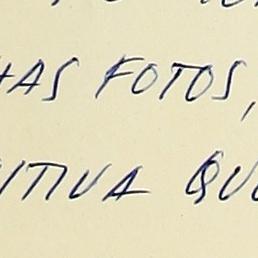 HAS FOTOS,
ITIVA QU